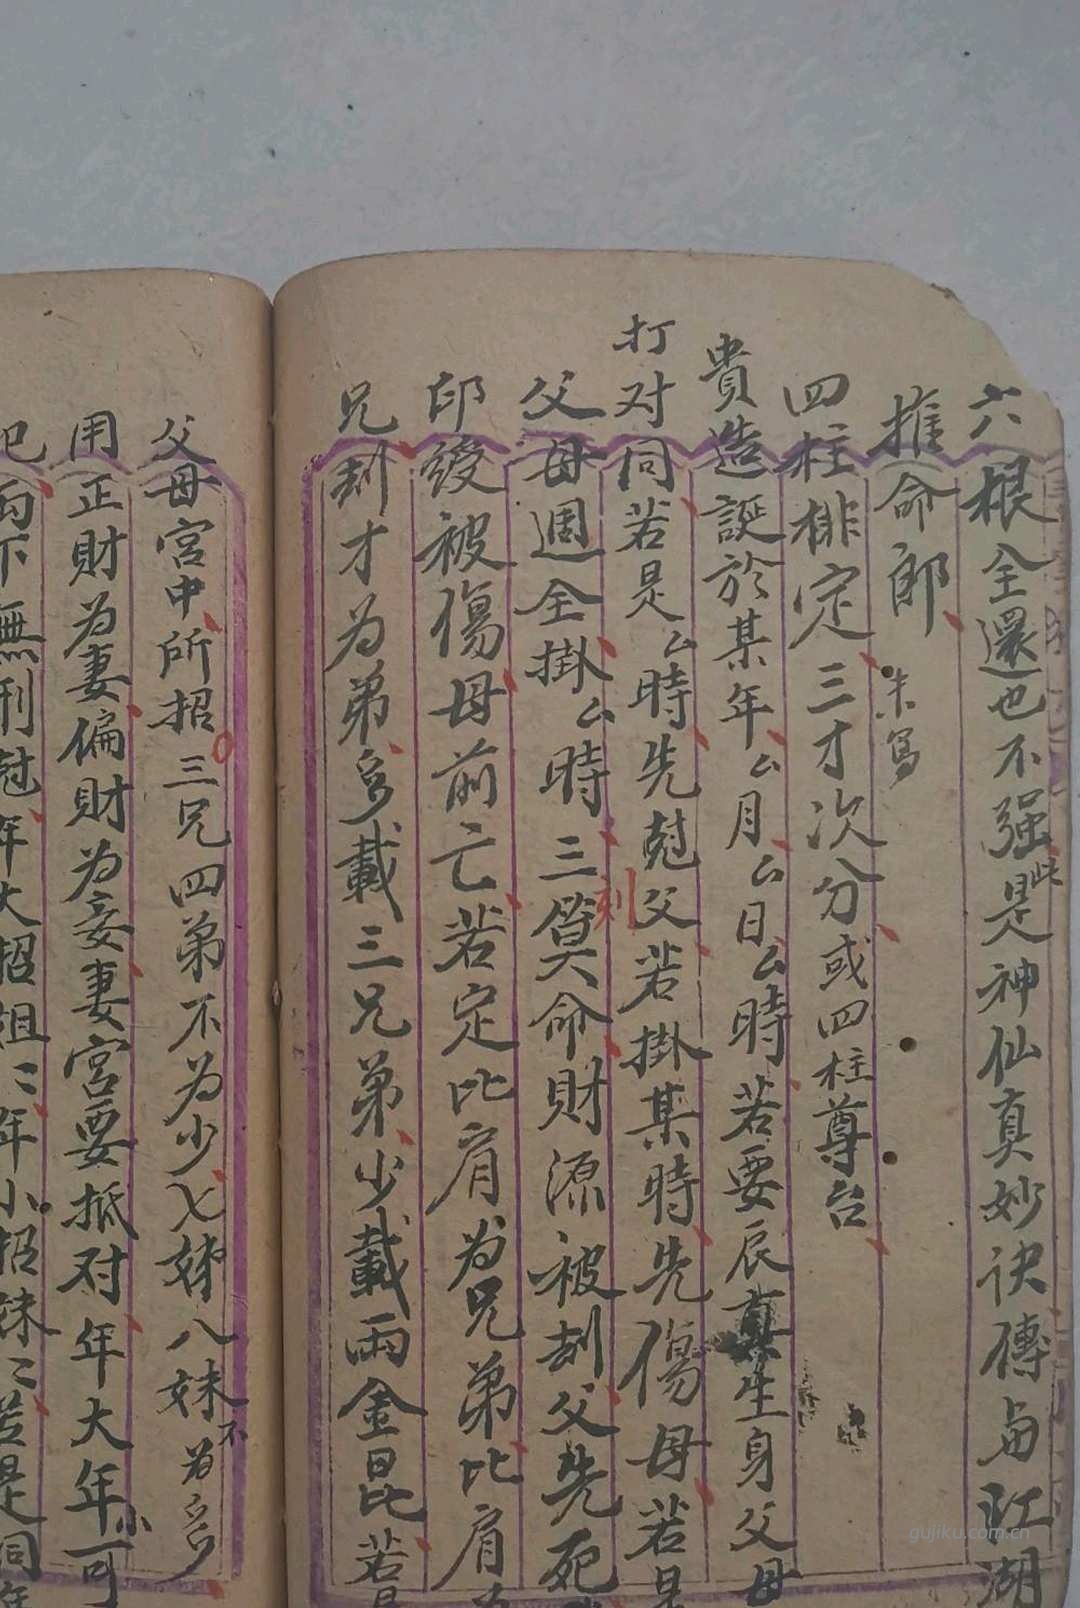 六根全還也不强此是神仙真妙诀傳与江湖
推命郎 未写
四柱排定三才次分或四柱尊台
貴造誕於某年厶月厶日厶時若要辰真生身父母
打对同若是厶時先尅父若掛某時先傷母若是
父母週全掛厶時三刻算命財源被刦父先死
印绶被傷母前亡若定比肩为兄弟比肩
兄刦才为弟多載三兄弟少載两金昆若是
父母宫中所招三兄四弟不为少七姊八妹不为多
用正財为妻偏財为妾妻宫要抵对年大年小可
犯 無刑尅年大招姐二年小招妹二若是同年
gujiku.com.cn